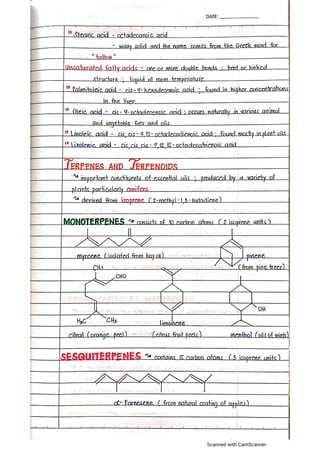 DATE:
Stearic acid - octadecanoic acid
- waxy solid and the name comes from the Greek word for
"tallow"
Unsaturated fatty acids - one or more double bonds ; bent or kinked
structure ; liquid at room temperature
Palmitoleic acid - cis-9-hexadecenoic acid ; found in higher concentrations
in the liver
Oleic acid - cis-9-octadecenoic acid ; occurs naturally in various animal
and vegetable fats and oils
Linoleic acid - cis, cis-9,12-octadecadienoic acid ; found mostly in plant oils
Linolenic acid - cis, cis, cis-9,12,15-octadecatrienoic acid
TERPENES AND TERPENOIDS
important constituents of essential oils ; produced by a variety of
plants particularly conifers
derived from isoprene (2-methyl-1,3-butadiene)
MONOTERPENES consists of 10 carbon atoms (2 isoprene units)
myrcene (isolated from bay oil) pinene
CH3 (from pine trees)
CHO
OH
H3C CH3 limonene
citral (orange peel) (citrus fruit peels) menthol (oils of mint)
SESQUITERPENES contains 15 carbon atoms (3 isoprene units)
α-Farnesene (from natural coating of apples)
Scanned with CamScanner